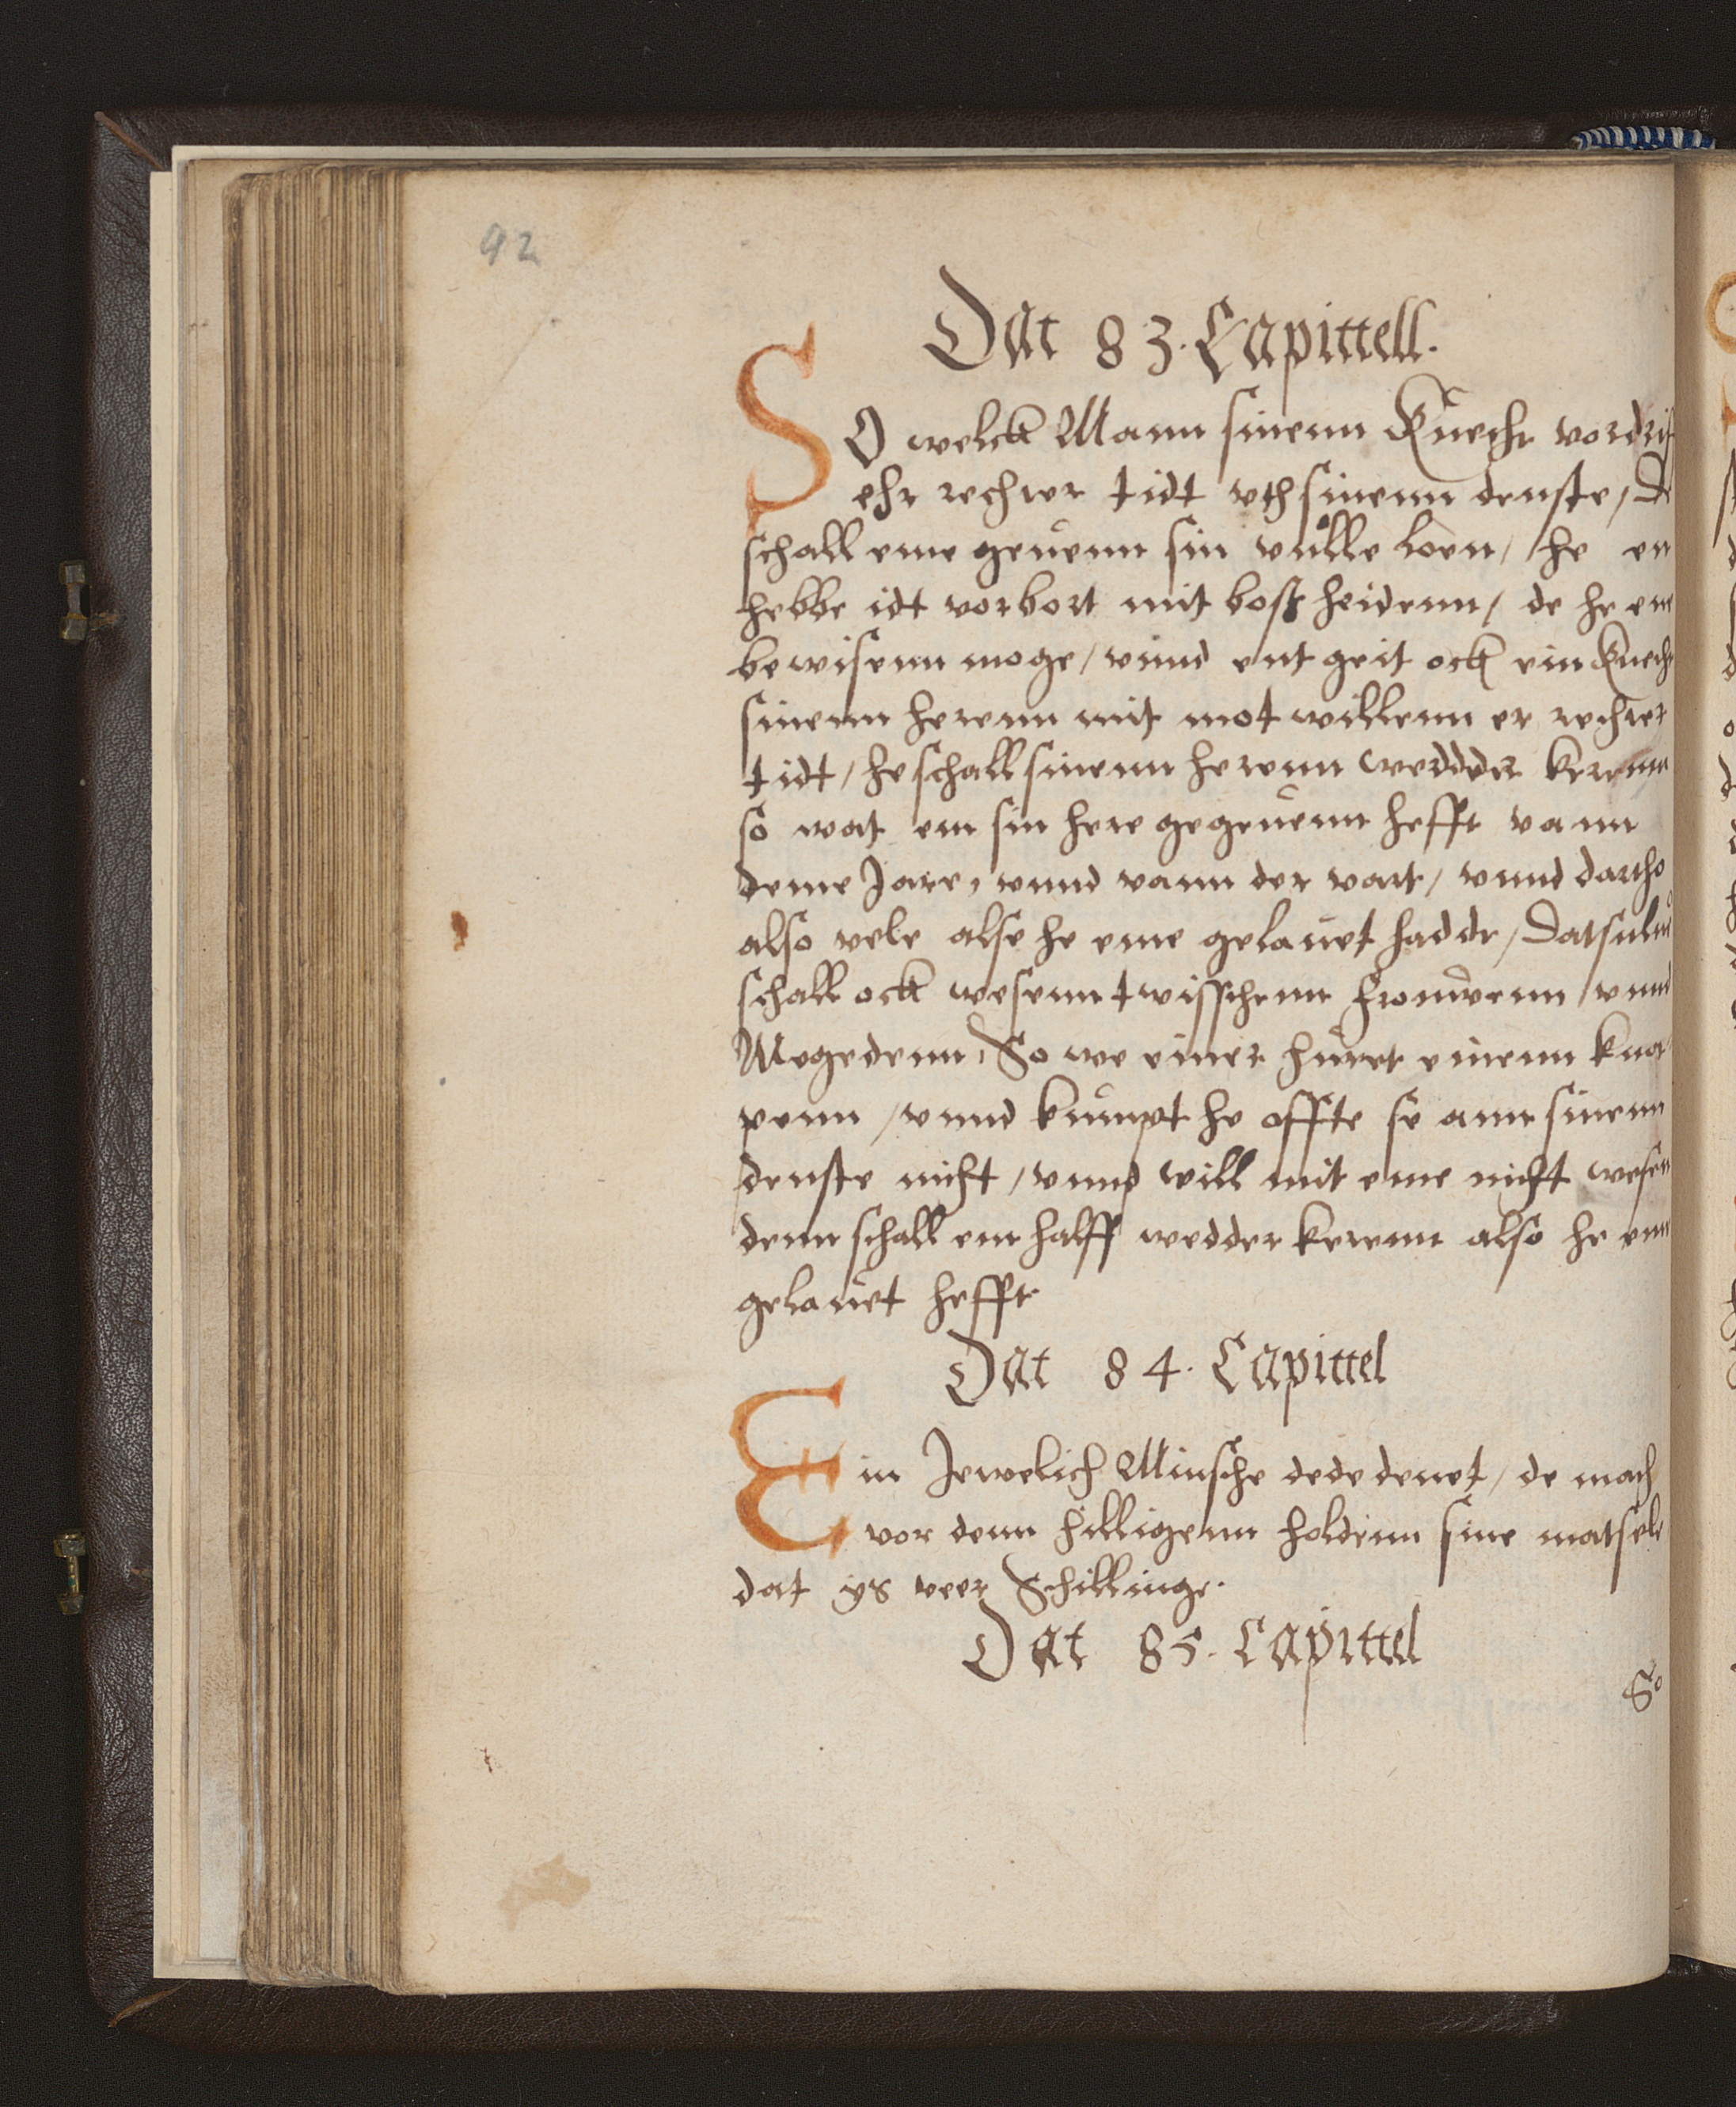 92
Dat 83. Capittell.
SO welck Mann sinenn Knecht vordrif
ehr rechter tidt vth sinenn denste, De
schall eme geuenn sin vulle loen, he en
hebbe idt vorbort mit bosheidenn, de he eme
bewisenn moge, vnnd entgeit ock ein Knech
sinenn herenn mit motwillenn er rechter
tidt, he schall sinenn herenn wedder kerenn
so wat em sin here gegeuenn hefft vann
deme Jare, vnnd vann der vart, vnnd dartho
also vele alse he eme gelauet hadde, Datsulue
schall ock wesenn twisschenn frouwenn vnnd
Megedenn, So we einer huret einenn kna
penn, vnnd kumpt he offte se ann sinenn
denste nicht, vnnd will mit eme nicht wesen
denn schall em halff wedder kerenn also he em
gelauet hefft
Dat 84. Capittel
Ein Jewelich Minsche dede denet, de mach
vor denn hilligenn holdenn sine matsele
dat ys veer Schillinge.
Dat 85. Capittel
So